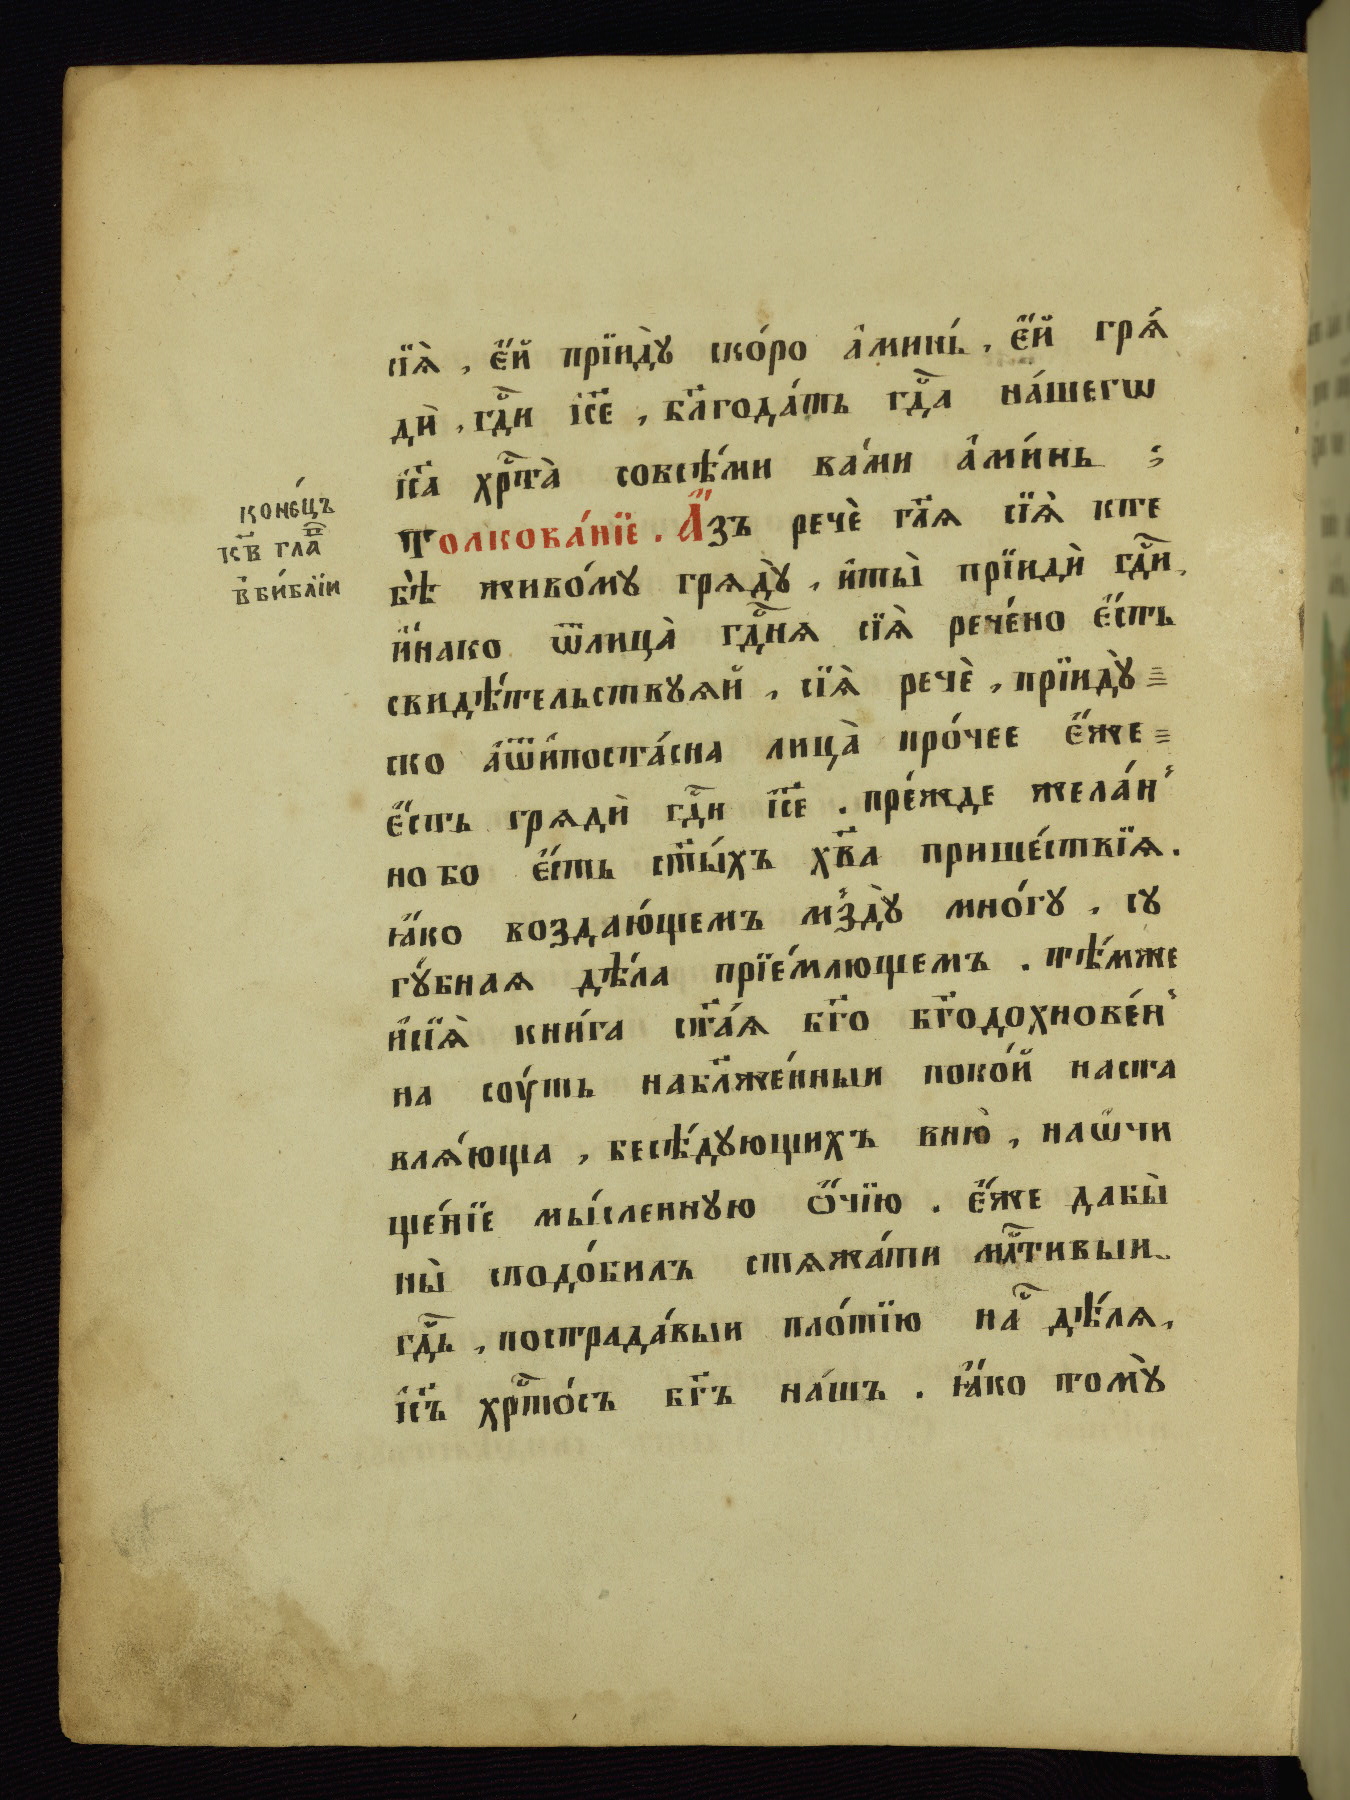 сїѧ̀ , є҆́й прїидꙋ̀ ско́ро а҆минь́ , є҆́й грѧ́
дѝ , гдⷭ҇и і҆се , бл҃года́ть гдⷭ҇а на́шегѡ
і҆с҃а хрⷭ҇та̀ совсѣ́ми ва́ми а҆ми́нь ;
Толкова́нїе . А҆́зъ речѐ гл҃ѧ сїѧ̀ кте
бѣ̀ живо́мꙋ грѧдꙋ̀ , и҆ты̀ прїидѝ гдⷭ҇и ,
и҆́нако ѿлица̀ гдⷭ҇нѧ сїѧ̀ рече́но є҆́сть
свидѣ́тельствꙋѧй , сїѧ̀ речѐ , прїидꙋ̀
ско а҆ѿѵпоста́сна лица̀ про́чее є҆́же
є҆́сть грѧдѝ гдⷭ҇и і҆с҃е . пре́жде жела́н
но бо є҆́сть ст҃ы́хъ хв҃а прише́ствїѧ .
ꙗ҆́ко воздаю́щемъ мздꙋ̀ мно́гꙋ , сꙋ
гꙋ́бнаѧ дѣ́ла прїе́млющемъ . тѣ́мже
и҆сїѧ̀ кни́га ст҃а́ѧ бг҃о бг҃одохнове́н
на соу́ть набл҃же́нныи поко́й наста
влѧ́юща , бесѣ́дꙋющихъ вню̀ , наѡ҆чи
ще́нїе мы́сленнꙋю ѻ҆́чїю . є҆́же дабы̀
ны̀ сподо́билъ стѧжа́ти млⷭ҇тивыи
гдⷭ҇ь , пострада́выи пло́тїю наⷭ҇ дѣ́лѧ ,
і҆с҃ъ хрⷭ҇то́съ бг҃ъ на́шъ . ꙗ҆́ко томꙋ̀
коне́цъ
к҃в глаⷡ҇
в҆би́блїи